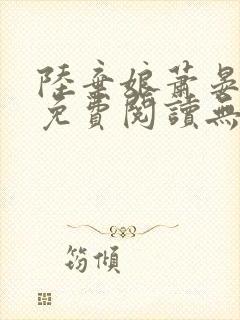 陸棄娘蕭晏
免費閱讀無
筠傾